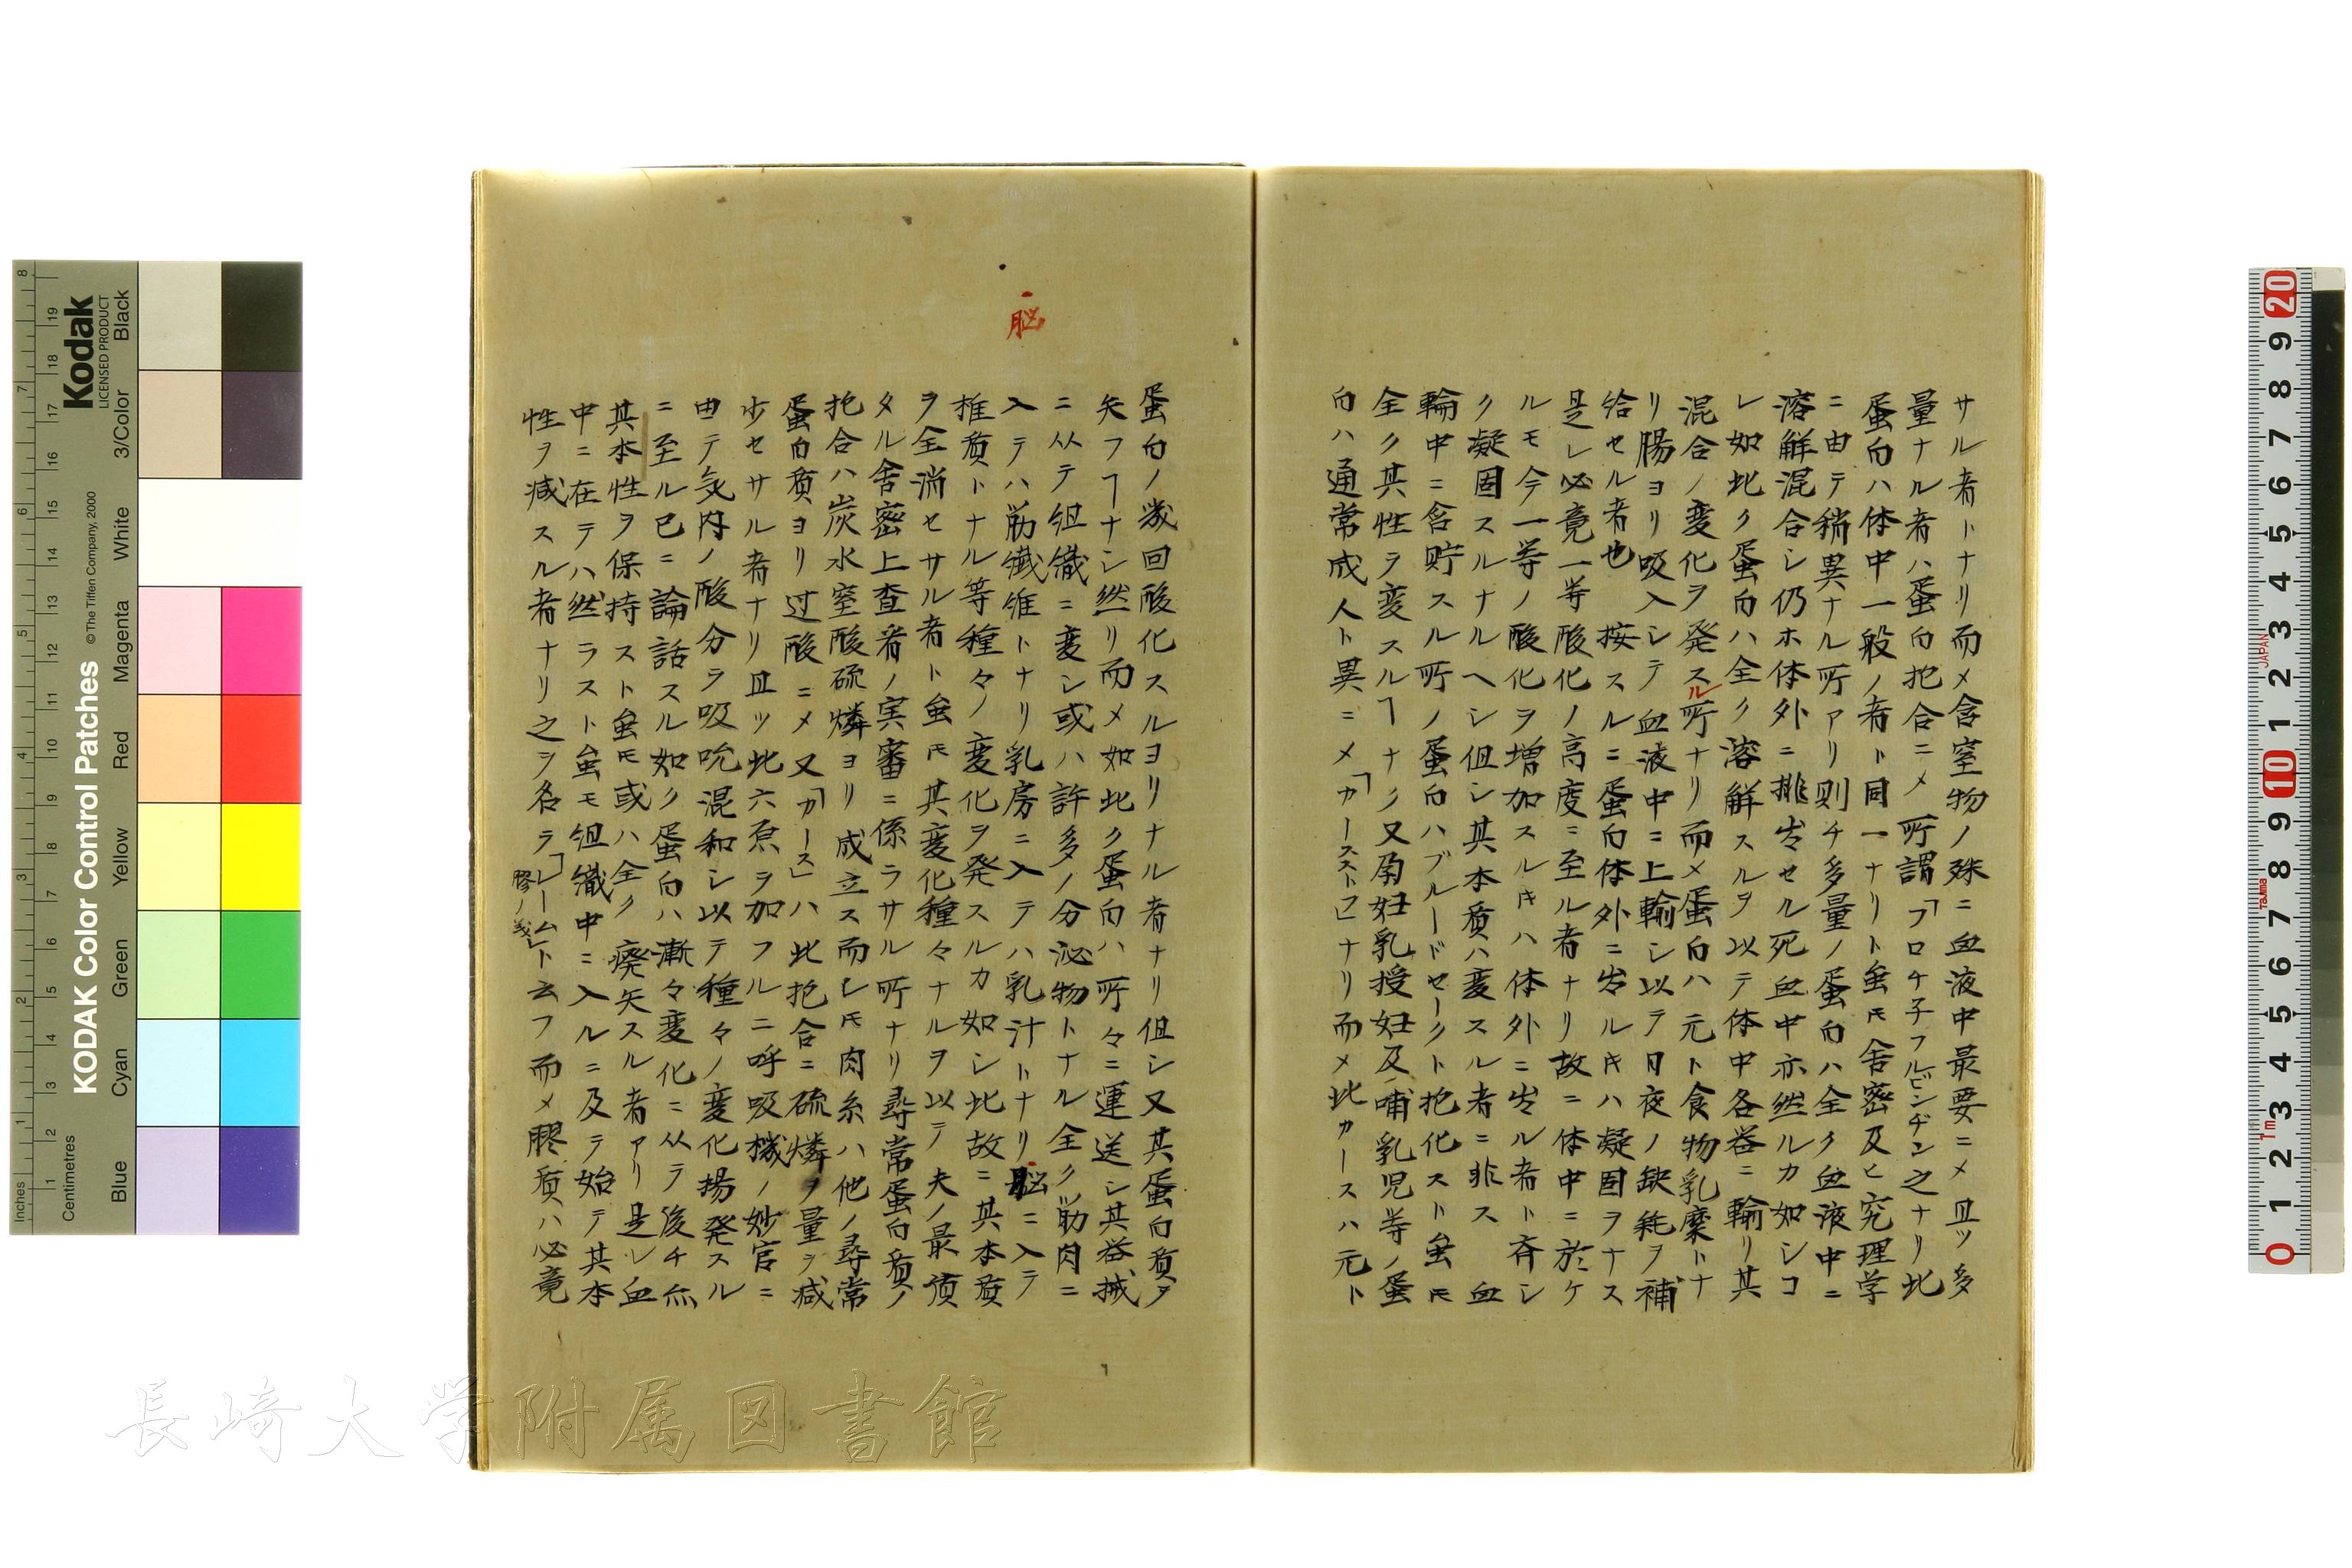 サル者トナリ而メ含窒物ノ殊ニ血液中最要ニメ且ツ多
量ナル者ハ蛋白抱合ニメ所謂「プロチ子フルビンヂン之ナリ此
蛋白ハ体中一般ノ者ト同一ナリト虽𪜈舎密及ヒ究理学
ニ由テ稍異ナル所アリ則チ多量ノ蛋白ハ全ク血液中ニ
溶解混合シ仍ホ体外ニ排出セル死血中亦然ルカ如シコ
レ如此ク蛋白ハ全ク溶解スルヲ以テ体中各器ニ輸リ其
混合ノ変化ヲ発スル所ナリ而メ蛋白ハ元ト食物乳糜トナ
リ腸ヨリ吸入シテ血液中ニ上輸シ以テ日夜ノ缺耗ヲ補
給セル者也 按スルニ蛋白体外ニ出ルキハ凝固ヲナス
是レ必竟一等酸化ノ高度ニ至ル者ナリ故ニ体中ニ於ケ
ルモ今一等ノ酸化ヲ増加スルキハ体外ニ出ル者ト斉シ
ク凝固スルナルヘシ但シ其本質ハ変スル者ニ非ス 血
輪中ニ含貯スル所ノ蛋白ハブルードセークト抱化スト虽𪜈
全ク其性ヲ変スルヿナク又孕妊乳授妊及哺乳児等ノ蛋
白ハ通常成人ト異ニメ「カーススト」ナリ而メ此カースハ元ト
脳
蛋白ノ幾回酸化スルヨリナル者ナリ但シ又其蛋白質ヲ
矢フヿナシ然リ而メ如此ク蛋白ハ所々ニ運送シ其器械
ニ从テ組織ニ変シ或ハ許多ノ分泌物トナル全ク筋肉ニ
入テハ筋繊維トナリ乳房ニ入テハ乳汁トナリ脳ニ入テ
推質トナル等種々ノ変化ヲ発スルカ如シ此故ニ其本質
ヲ全消セサル者ト虽𪜈其変化種々ナルヲ以テ夫ノ最頂
タル舎密上査者ノ実審ニ係ラサル所ナリ尋常蛋白質ノ
抱合ハ炭水窒酸硫燐ヨリ成立ス而レ𪜈肉糸ハ他ノ尋常
蛋白質ヨリ过酸ニメ又「カース」ハ此抱合ニ硫燐ノ量ヲ減
少セサル者ナリ且ツ此六原ヲ加フルニ呼吸機ノ妙官ニ
由テ気内ノ酸分ラ吸吮混和シ以テ種々ノ変化揚発スル
ニ至ル已ニ論話スル如ク蛋白ハ漸々変化ニ从テ後チ
其本性ヲ保持スト虽𪜈或ハ全ク廃矢スル者アリ是レ血
中ニ在テハ然ラスト虽モ組織中ニ入ルニ及テ始テ其本
性ヲ減スル者ナリ之ヲ名ラ「レーム膠ノ義」ト云フ而メ膠質ハ必竟
長崎大学附属図書館